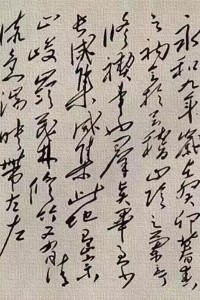 永和九年歲在癸卯暮春
之初會於會稽山陰之蘭亭
修禊事也羣賢畢至少
長咸集咸集此地有崇
山峻嶺茂林修竹又有清
流激湍映帶左右